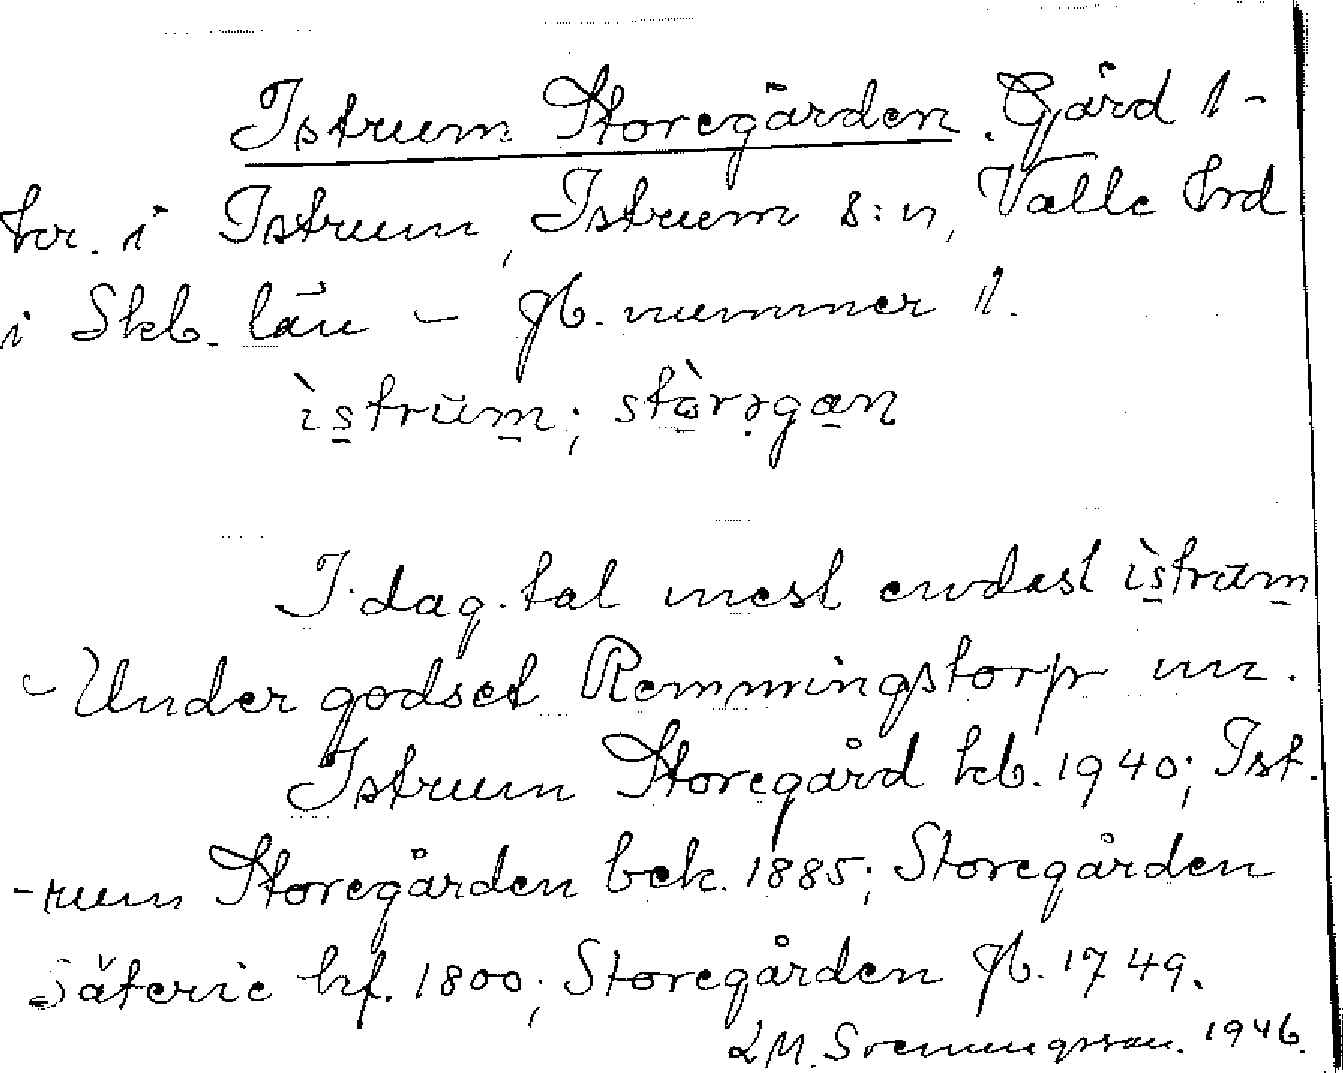 Istrum Storegården. Gård 1-
hr. i Istrum, Istrum s:n, Valle hrd
i Skb. län – jb. nummer 1.
ìstrŭm; stòrəgan
I dag. tal mest endast ìstrŭm
– Under godset Remmingstorp nr.
Istrum Storegård kb. 1940; Ist-
-rum Storegården bek. 1885; Storegården
Säterie hf. 1800; Storegården jb. 1749.
L M. Svenungsson. 1946.